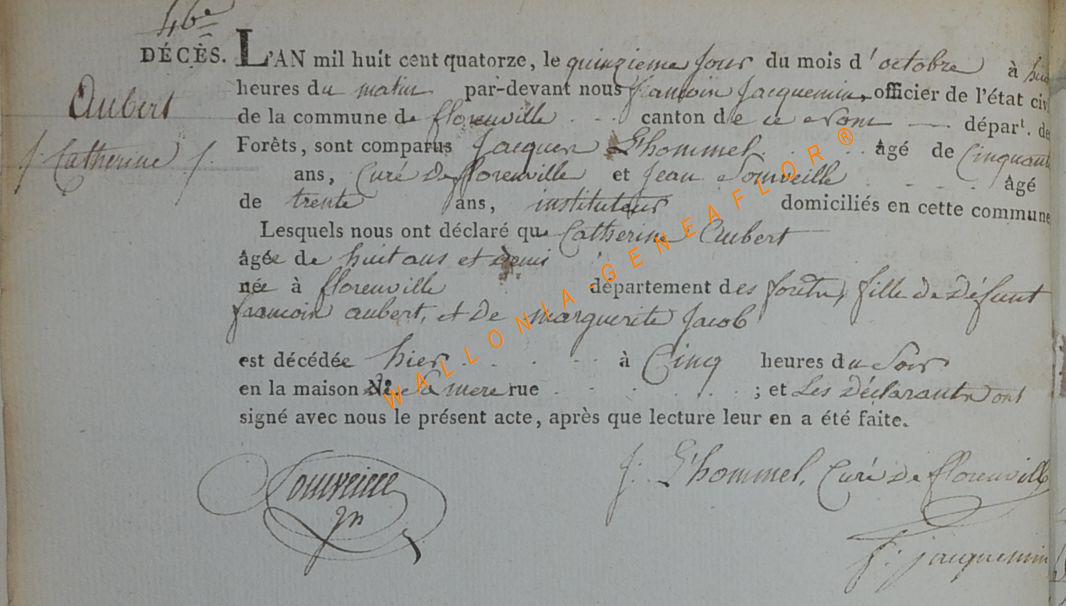 46e
DÉCÈS. L'AN mil huit cent quatorze, le quinzieme jour du mois d'octobre à huit
Aubert
heures du matin par-devant nous françois Jacquemin, officier de l'état civ
de la commune de florenville canton de ce nom départ. des
Catherine
Forêts, sont comparus Jacques L'hommel âgé de Cinquante
ans, Curé De florenville et Jean Souveille âgé
de trente ans, instituteur domiciliés en cette commune
Lesquels nous ont déclaré que Catherine Aubert
âgée de huit ans et demi
née à florenville département des forêts, fille de Défunt
françois aubert, et De marguerite Jacob
est décédée hier à Cinq heures du Soir
en la maison No. de Sa mere rue ; et Les Déclarants ont
signé avec nous le présent acte, après que lecture leur en a été faite.
Souveille
J. L'hommel, Curé De florenville
f: jacquemin
WALLONIA-GENEAFLOR ®